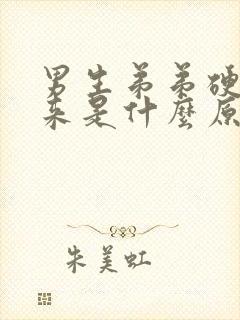 男生弟弟硬
来是什麼原
朱美虹